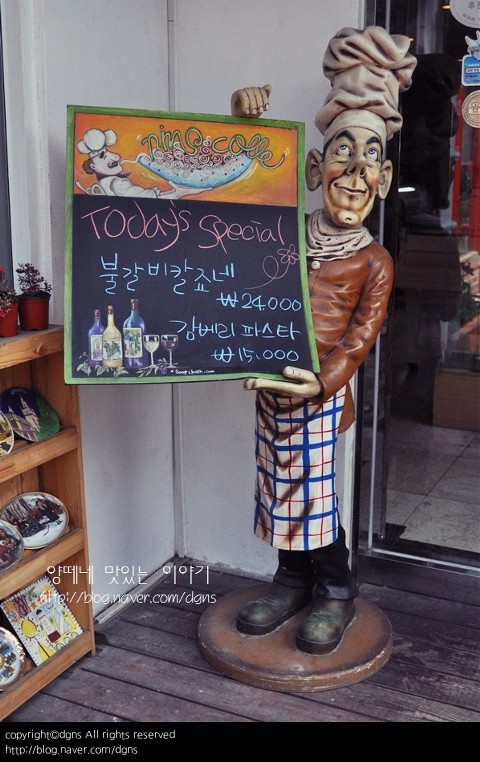 nino & cafe
Today's Special
불갈비칼죠네
₩24.000
감베리 파스타
₩15.000
양떼네 맛있는 이야기
http://blog.naver.com/dgns
copyright©dgns All rights reserved
http://blog.naver.com/dgns